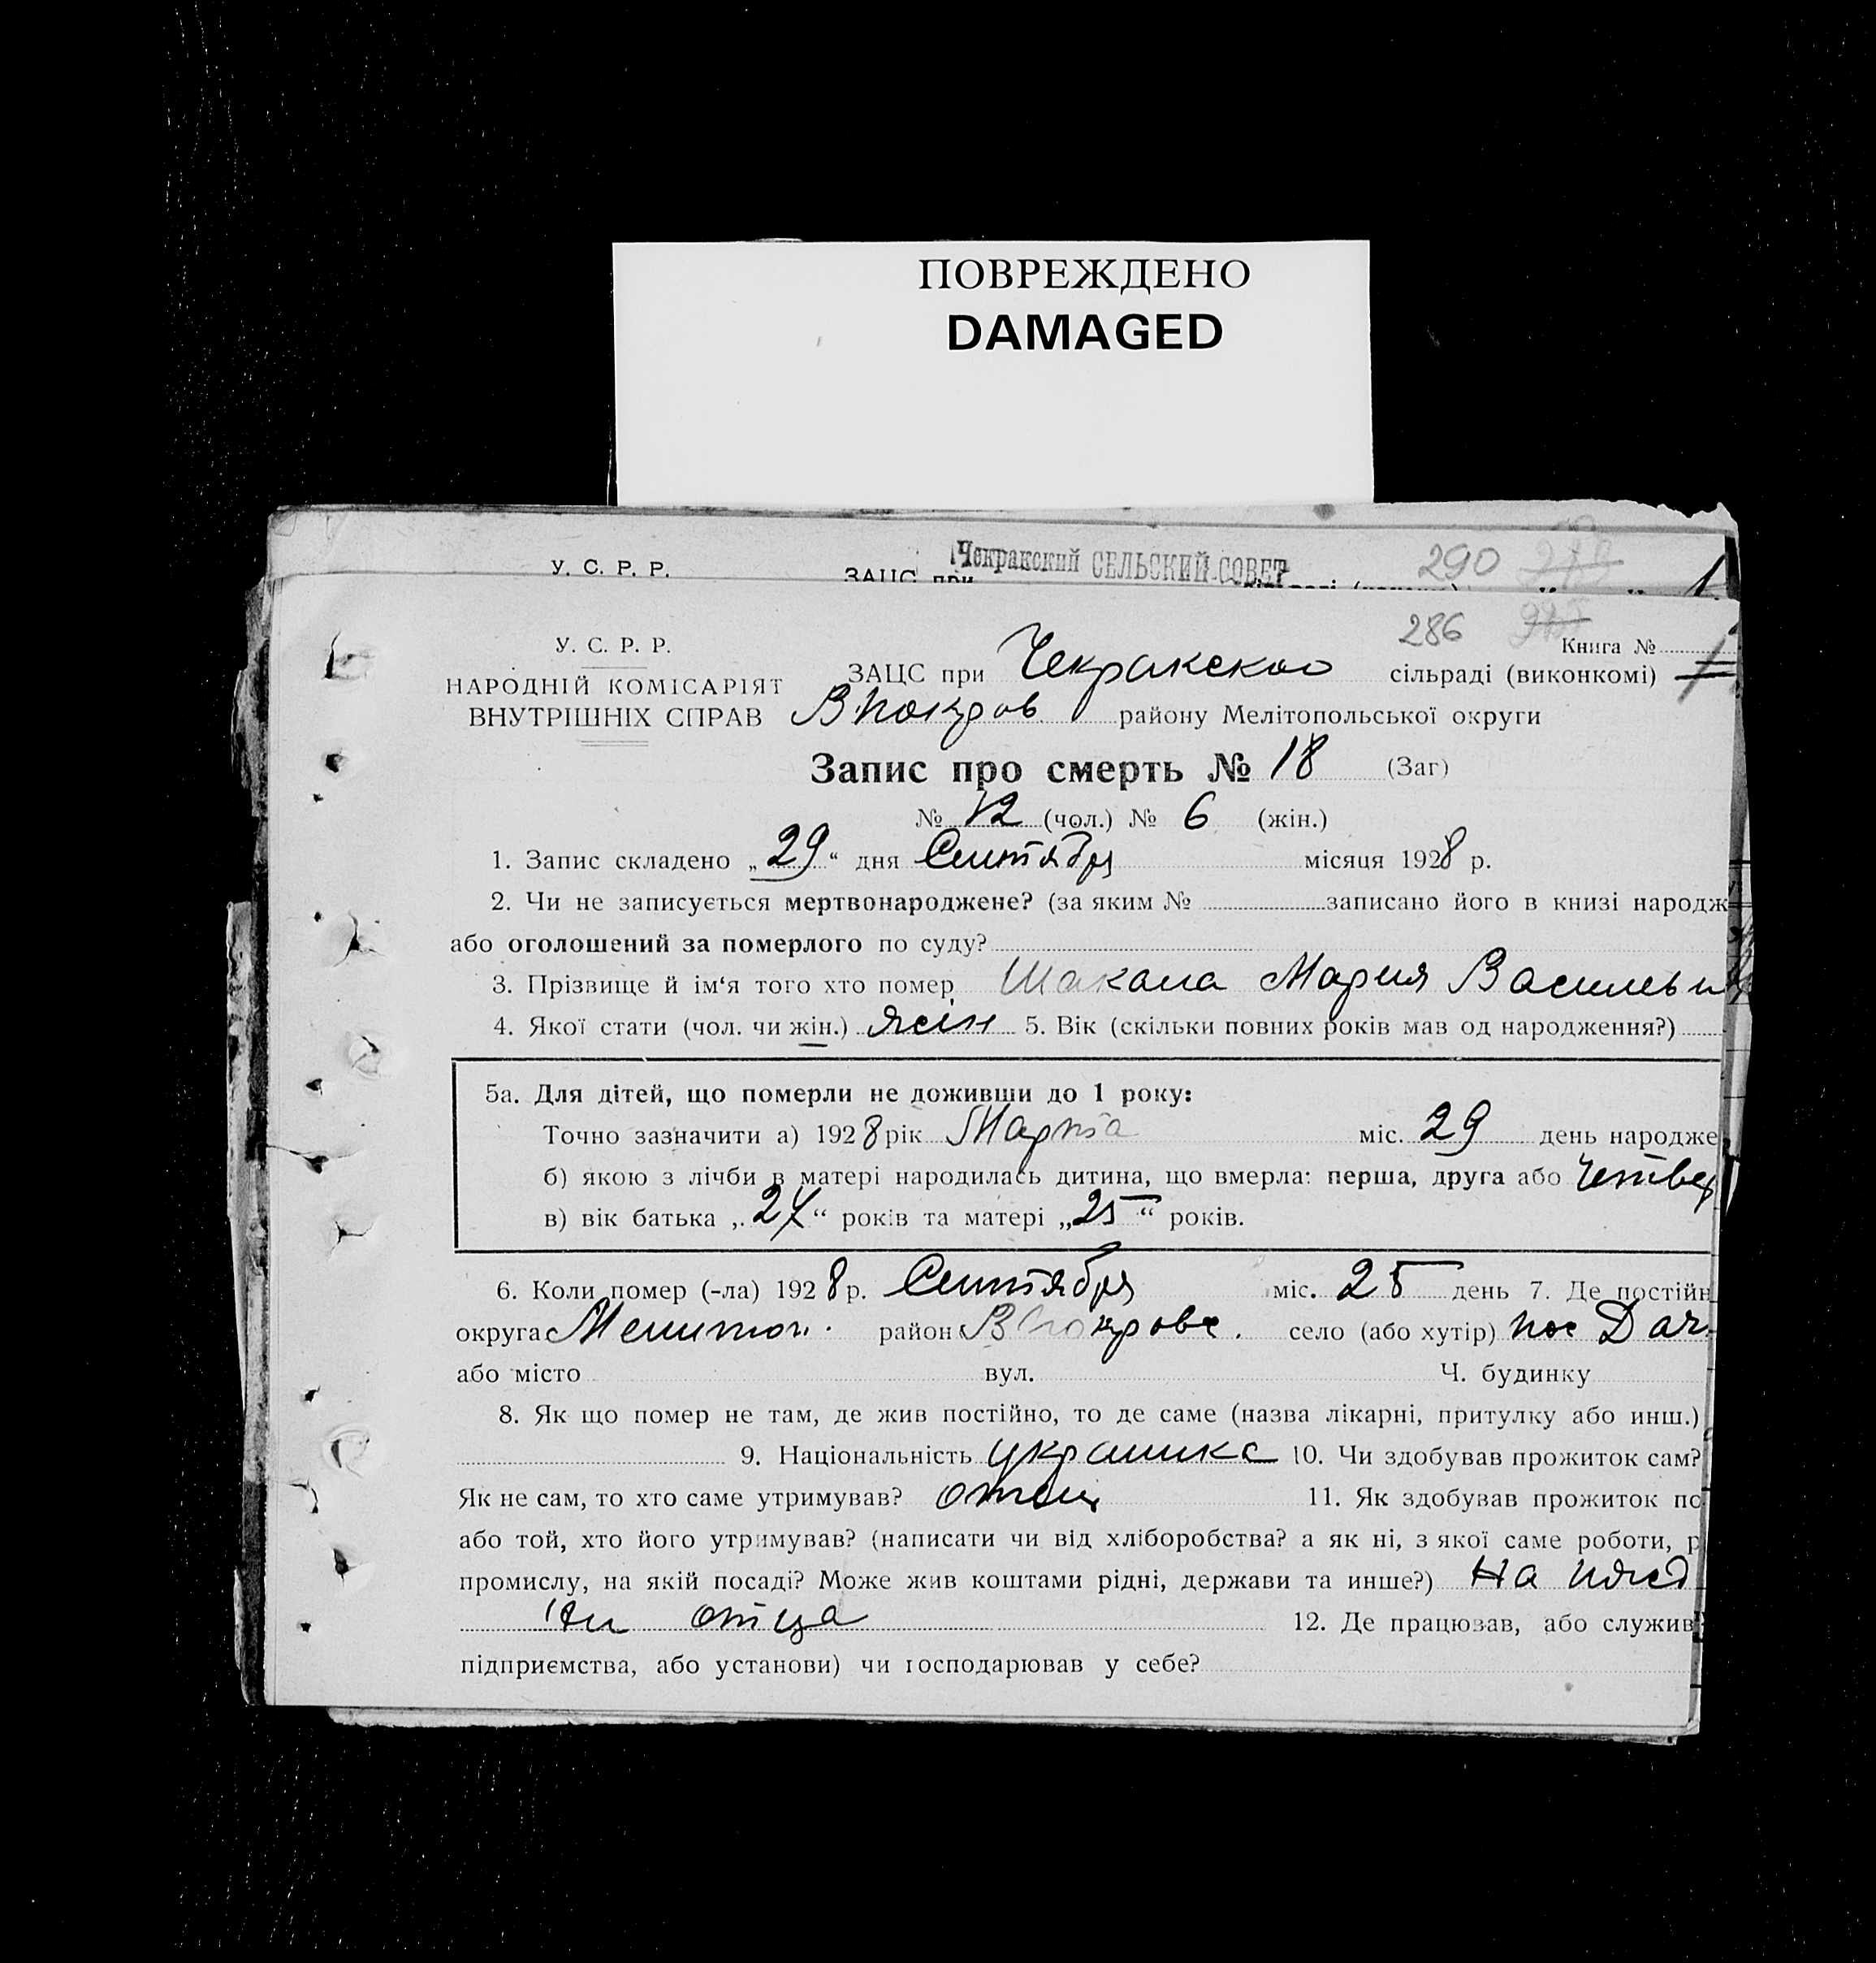 ПОВРЕЖДЕНО
DAMAGED
У. С. Р. Р. ЗАЦС при Чекракский СЕЛЬСКИЙ СОВЕТ 290
286 Книга № 1
У. С. Р. Р.
НАРОДНІЙ КОМІСАРІЯТ ЗАЦС при Чекракском сільраді (виконкомі)
ВНУТРІШНІХ СПРАВ ВПокров району Мелітопольської округи
Запис про смерть № 18 (Заг)
№ 12 (чол.) № 6 (жін.)
1. Запис складено „29“ дня Сентября місяця 1928 р.
2. Чи не записується мертвонароджене? (за яким № записано його в книзі народж
або оголошений за померлого по суду?
3. Прізвище й ім‘я того хто помер Шакала Мария Васильев
4. Якої стати (чол. чи жін.) жін 5. Вік (скільки повних років мав од народження?)
5а. Для дітей, що померли не доживши до 1 року:
Точно зазначити а) 1928 рік Марта міс. 29 день народже
б) якою з лічби в матері народилась дитина, що вмерла: перша, друга або четвер
в) вік батька „27“ років та матері „25“ років.
6. Коли помер (-ла) 1928 р. Сентября міс. 25 день 7. Де постійн
округа Мелитоп. район ВПокровс. село (або хутір) пос Дач
або місто вул. Ч. будинку
8. Як що помер не там, де жив постійно, то де саме (назва лікарні, притулку або инш.)
9. Національність украинка 10. Чи здобував прожиток сам?
Як не сам, то хто саме утримував? отец 11. Як здобував прожиток по
або той, хто його утримував? (написати чи від хліборобства? а як ні, з якої саме роботи, р
промислу, на якій посаді? Може жив коштами рідні, держави та инше?) На
отца 12. Де працював, або служив
підприємства, або установи) чи господарював у себе?